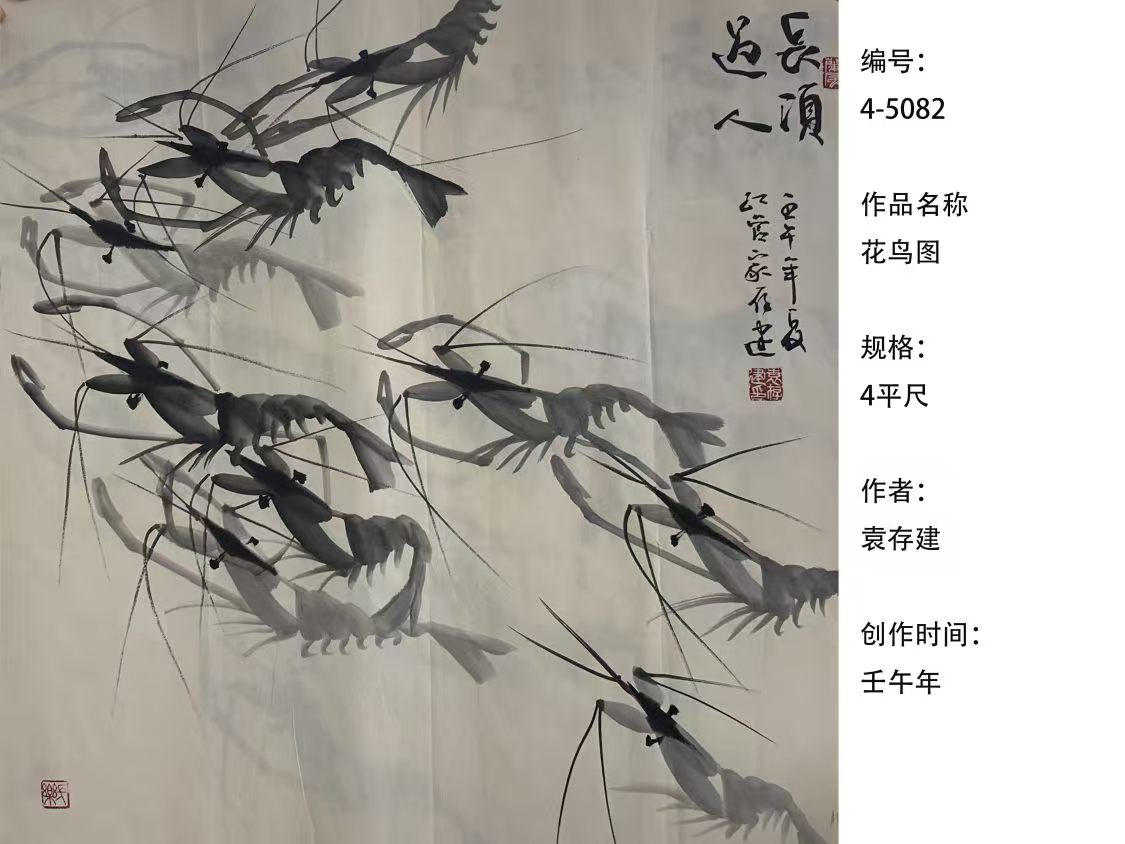 長須
過人
壬午年夏
存建
袁存建印
编号：
4-5082
作品名称
花鸟图
规格：
4平尺
作者：
袁存建
创作时间：
壬午年